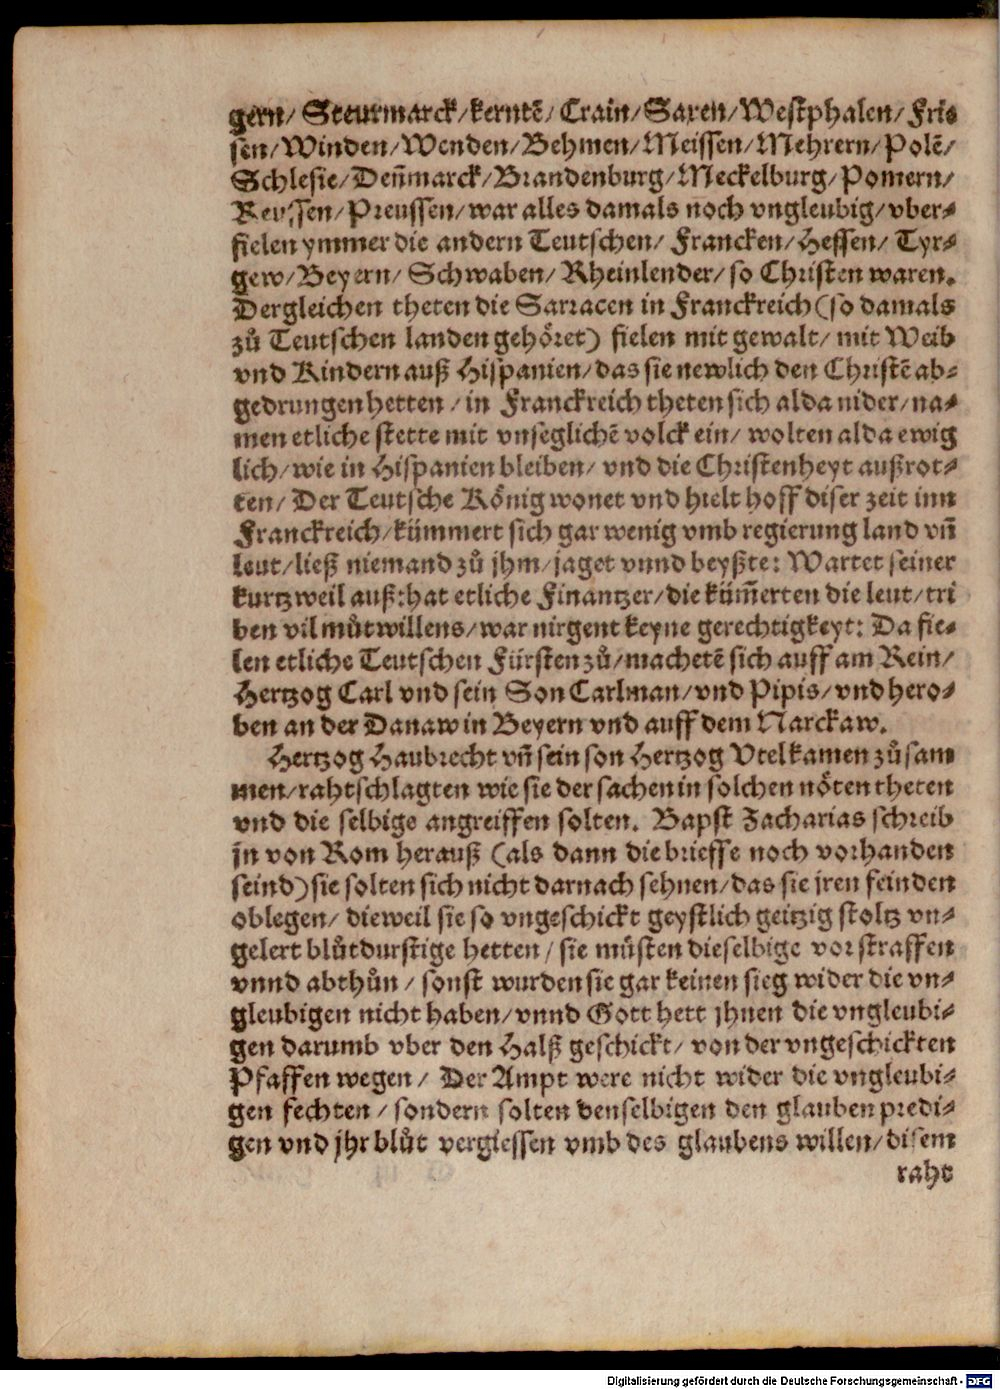 gern/ Steurmarck/kerntē/ Crain/Saxen/Westphalen/Frie
sen/Winden/Wenden/Behmen/Meissen/Mehrern/Polē/
Schlesie/Deñmarck/Brandenburg/Meckelburg/Pomern/
Reussen/Preussen/war alles damals noch vngleubig/vber-
fielen ymmer die andern Teutschen/ Francken/Hessen/ Tyr-
gew/Beyern/ Schwaben/Rheinlender/so Christen waren.
Dergleichen theten die Sarracen in Franckreich (so damals
zů Teutschen landen gehöret) fielen mit gewalt/ mit Weib
vnd Kindern auß Hispanien/das sie newlich den Christē ab-
gedrungen hetten /in Franckreich theten sich alda nider/na-
men etliche stette mit vnseglichē volck ein/ wolten alda ewig
lich/wie in Hispanien bleiben/ vnd die Christenheyt außrot-
ten/ Der Teutsche König wonet vnd hielt hoff diser zeit inn
Franckreich/kümmert sich gar wenig vmb regierung land vñ
leut/ließ niemand zů jhm/jaget vnnd beyßte: Wartet seiner
kurtzweil auß:hat etliche Finantzer/die küm̄erten die leut/tri
ben vil můtwillens/war nirgent keyne gerechtigkeyt: Da fie-
len etliche Teutschen Fürsten zů/machetē sich auff am Rein/
Hertzog Carl vnd sein Son Carlman/vnd Pipis/vnd hero-
ben an der Danaw in Beyern vnd auff dem Narckaw.
Hertzog Haubrecht vñ sein son Hertzog Vtel kamen zů sam
men/rahtschlagten wie sie der sachen in solchen nöten theten
vnd die selbige angreiffen solten. Bapst Zacharias schreib
jn von Rom herauß (als dann die brieffe noch vorhanden
seind) sie solten sich nicht darnach sehnen/das sie jren feinden
oblegen/ dieweil sie so vngeschickt geystlich geitzig stoltz vn-
gelert blůtdurstige hetten/ sie müsten dieselbige vor straffen
vnnd abthůn / sonst wurden sie gar keinen sieg wider die vn-
gleubigen nicht haben/vnnd Gott hett jhnen die vngleubi-
gen darumb vber den Halß geschickt/ von der vngeschickten
Pfaffen wegen/ Der Ampt were nicht wider die vngleubi-
gen fechten /sondern solten denselbigen den glauben predi-
gen vnd jhr blůt vergiessen vmb des glaubens willen/disem
raht
Digitalisierung gefördert durch die Deutsche Forschungsgemeinschaft - DFG